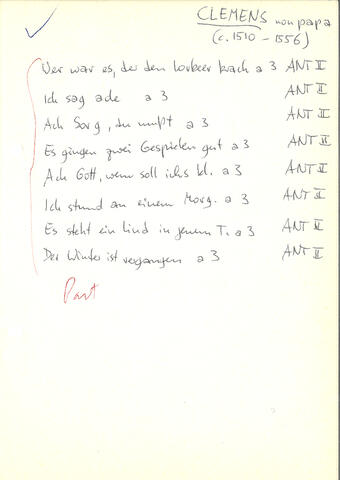 CLEMENS non papa
(c. 1510 - 1556)
Wer war es, der den Lorbeer brach a 3 ANT II
Ich sag ade a 3 ANT II
Ach Sorg, du mußt a 3 ANT II
Es gingen zwei Gespielen gut a 3 ANT II
Ach Gott, wem soll ichs kl. a 3 ANT II
Ich stund an einem Morg. a 3 ANT II
Es steht ein Lind in jenem T. a 3 ANT II
Der Winter ist vergangen a 3 ANT II
Part